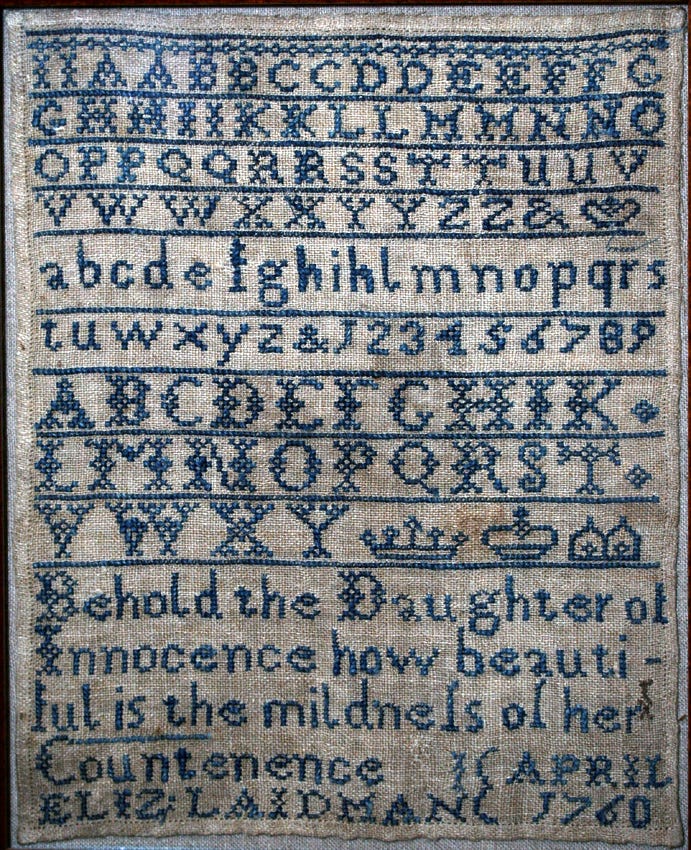 A A B B C C D D E E F F G
G H H I I K K L L M M N N O
O P P Q Q R R S S T T U U V
V W W X X Y Y Z Z &
a b c d e f g h i k l m n o p q r s
t u w x y z & 1 2 3 4 5 6 7 8 9
A B C D E F G H I K
L M N O P Q R S T
V W X Y
Behold the Daughter of
Innocence how beauti-
ful is the mildneſs of her
Countenence APRIL
ELIZ; LAIDMAN 1760